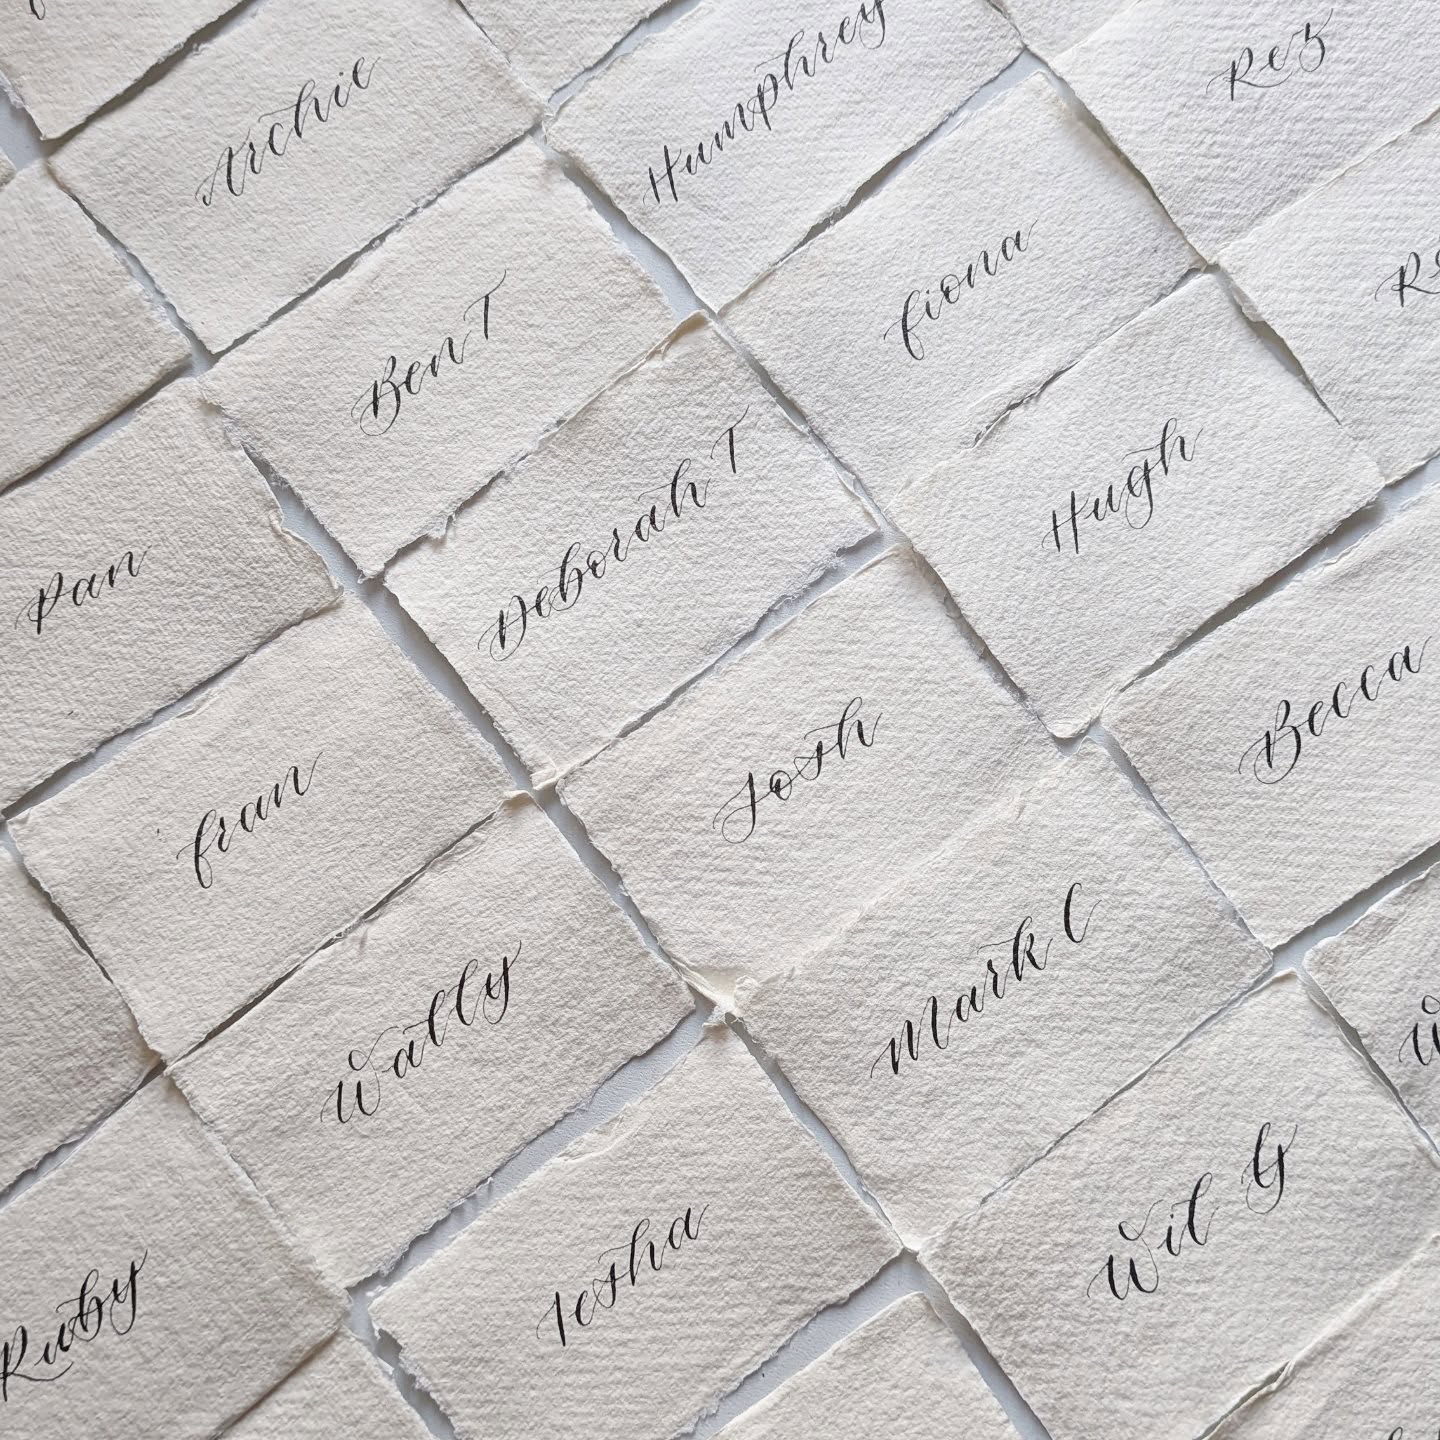 Archie
Humphrey
Rez
Ben T
fiona
Pan
Deborah T
Hugh
fran
Josh
Becca
Wally
Mark C
Ruby
Iesha
Wil G